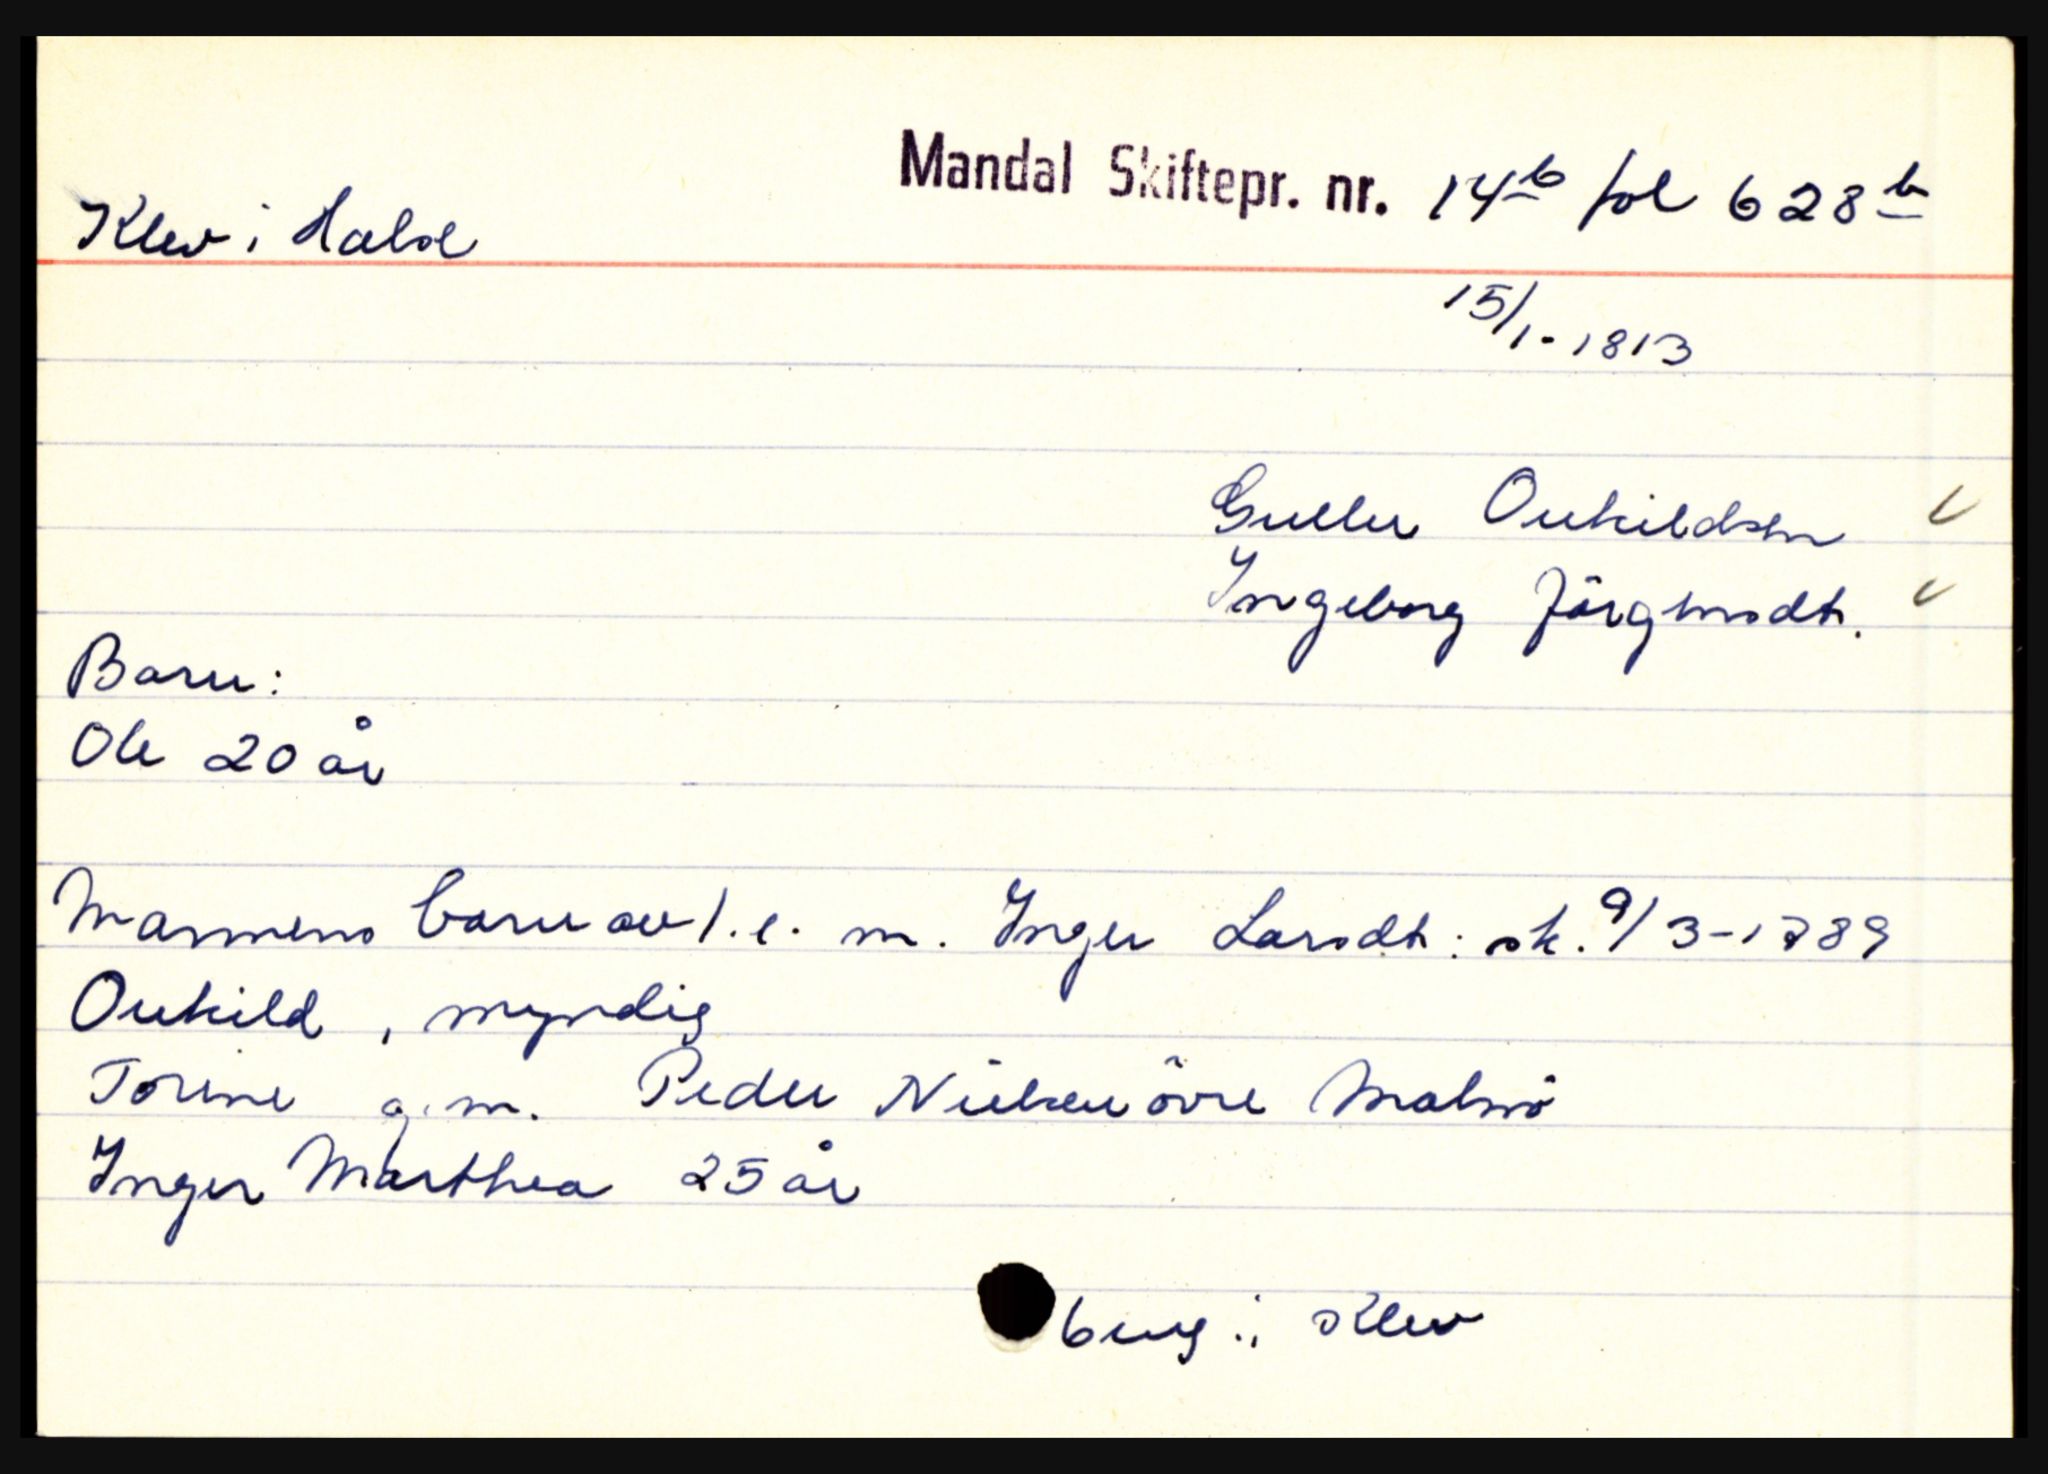 Mandal Skiftepr. nr. 14b fol 628b
Klev i Halse
15/1-1813
Guller Oukildsen
Ingeborg Jörgensdtr.
Barn:
Ole 20 år
Mannens barn av 1. e. m. Inger Larsdtr: sk. 9/3-1789
Oukild, myndig
Torine g.m. Peder Nielsen övre Malmö
Inger Marthea 25 år
brug i Klev